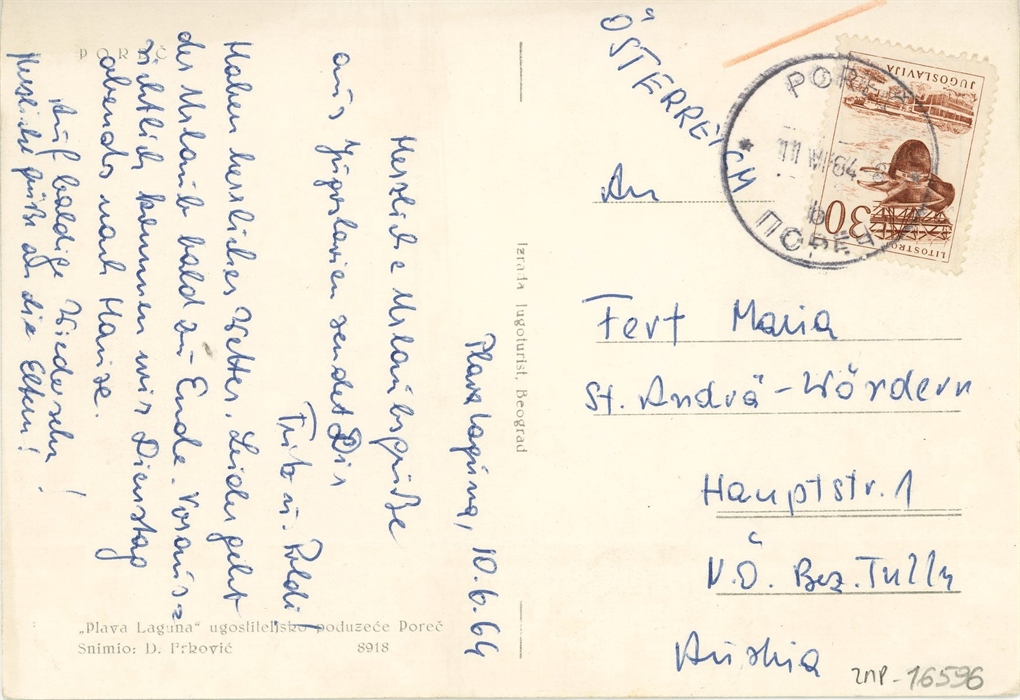 POREČ
Plava Laguna, 10.6.64
Herzliche Urlaubsgrüße
aus Jugoslavien sendet Dir
Fritz u. Poldi!
Haben herrliches Wetter. Leider geht
der Urlaub bald zu Ende. Voraus=
sichtlich kommen wir Dienstag
abends nach Hause.
Auf baldige Wiedersehn!
Herzliche Grüße an die Eltern!
„Plava Laguna“ ugostiteljsko poduzeće Poreč
Snimio: D. Frković 8918
Izrada Jugoturist, Beograd
ÖSTERREICH
JUGOSLAVIJA
30
LITOSTROJ
POREČ
11 VI 64
b
ПОРЕЧ
An
Fert Maria
St. Andrä-Wördern
Hauptstr. 1
N.Ö. Bez. Tulln
Austria
ZMP-16596